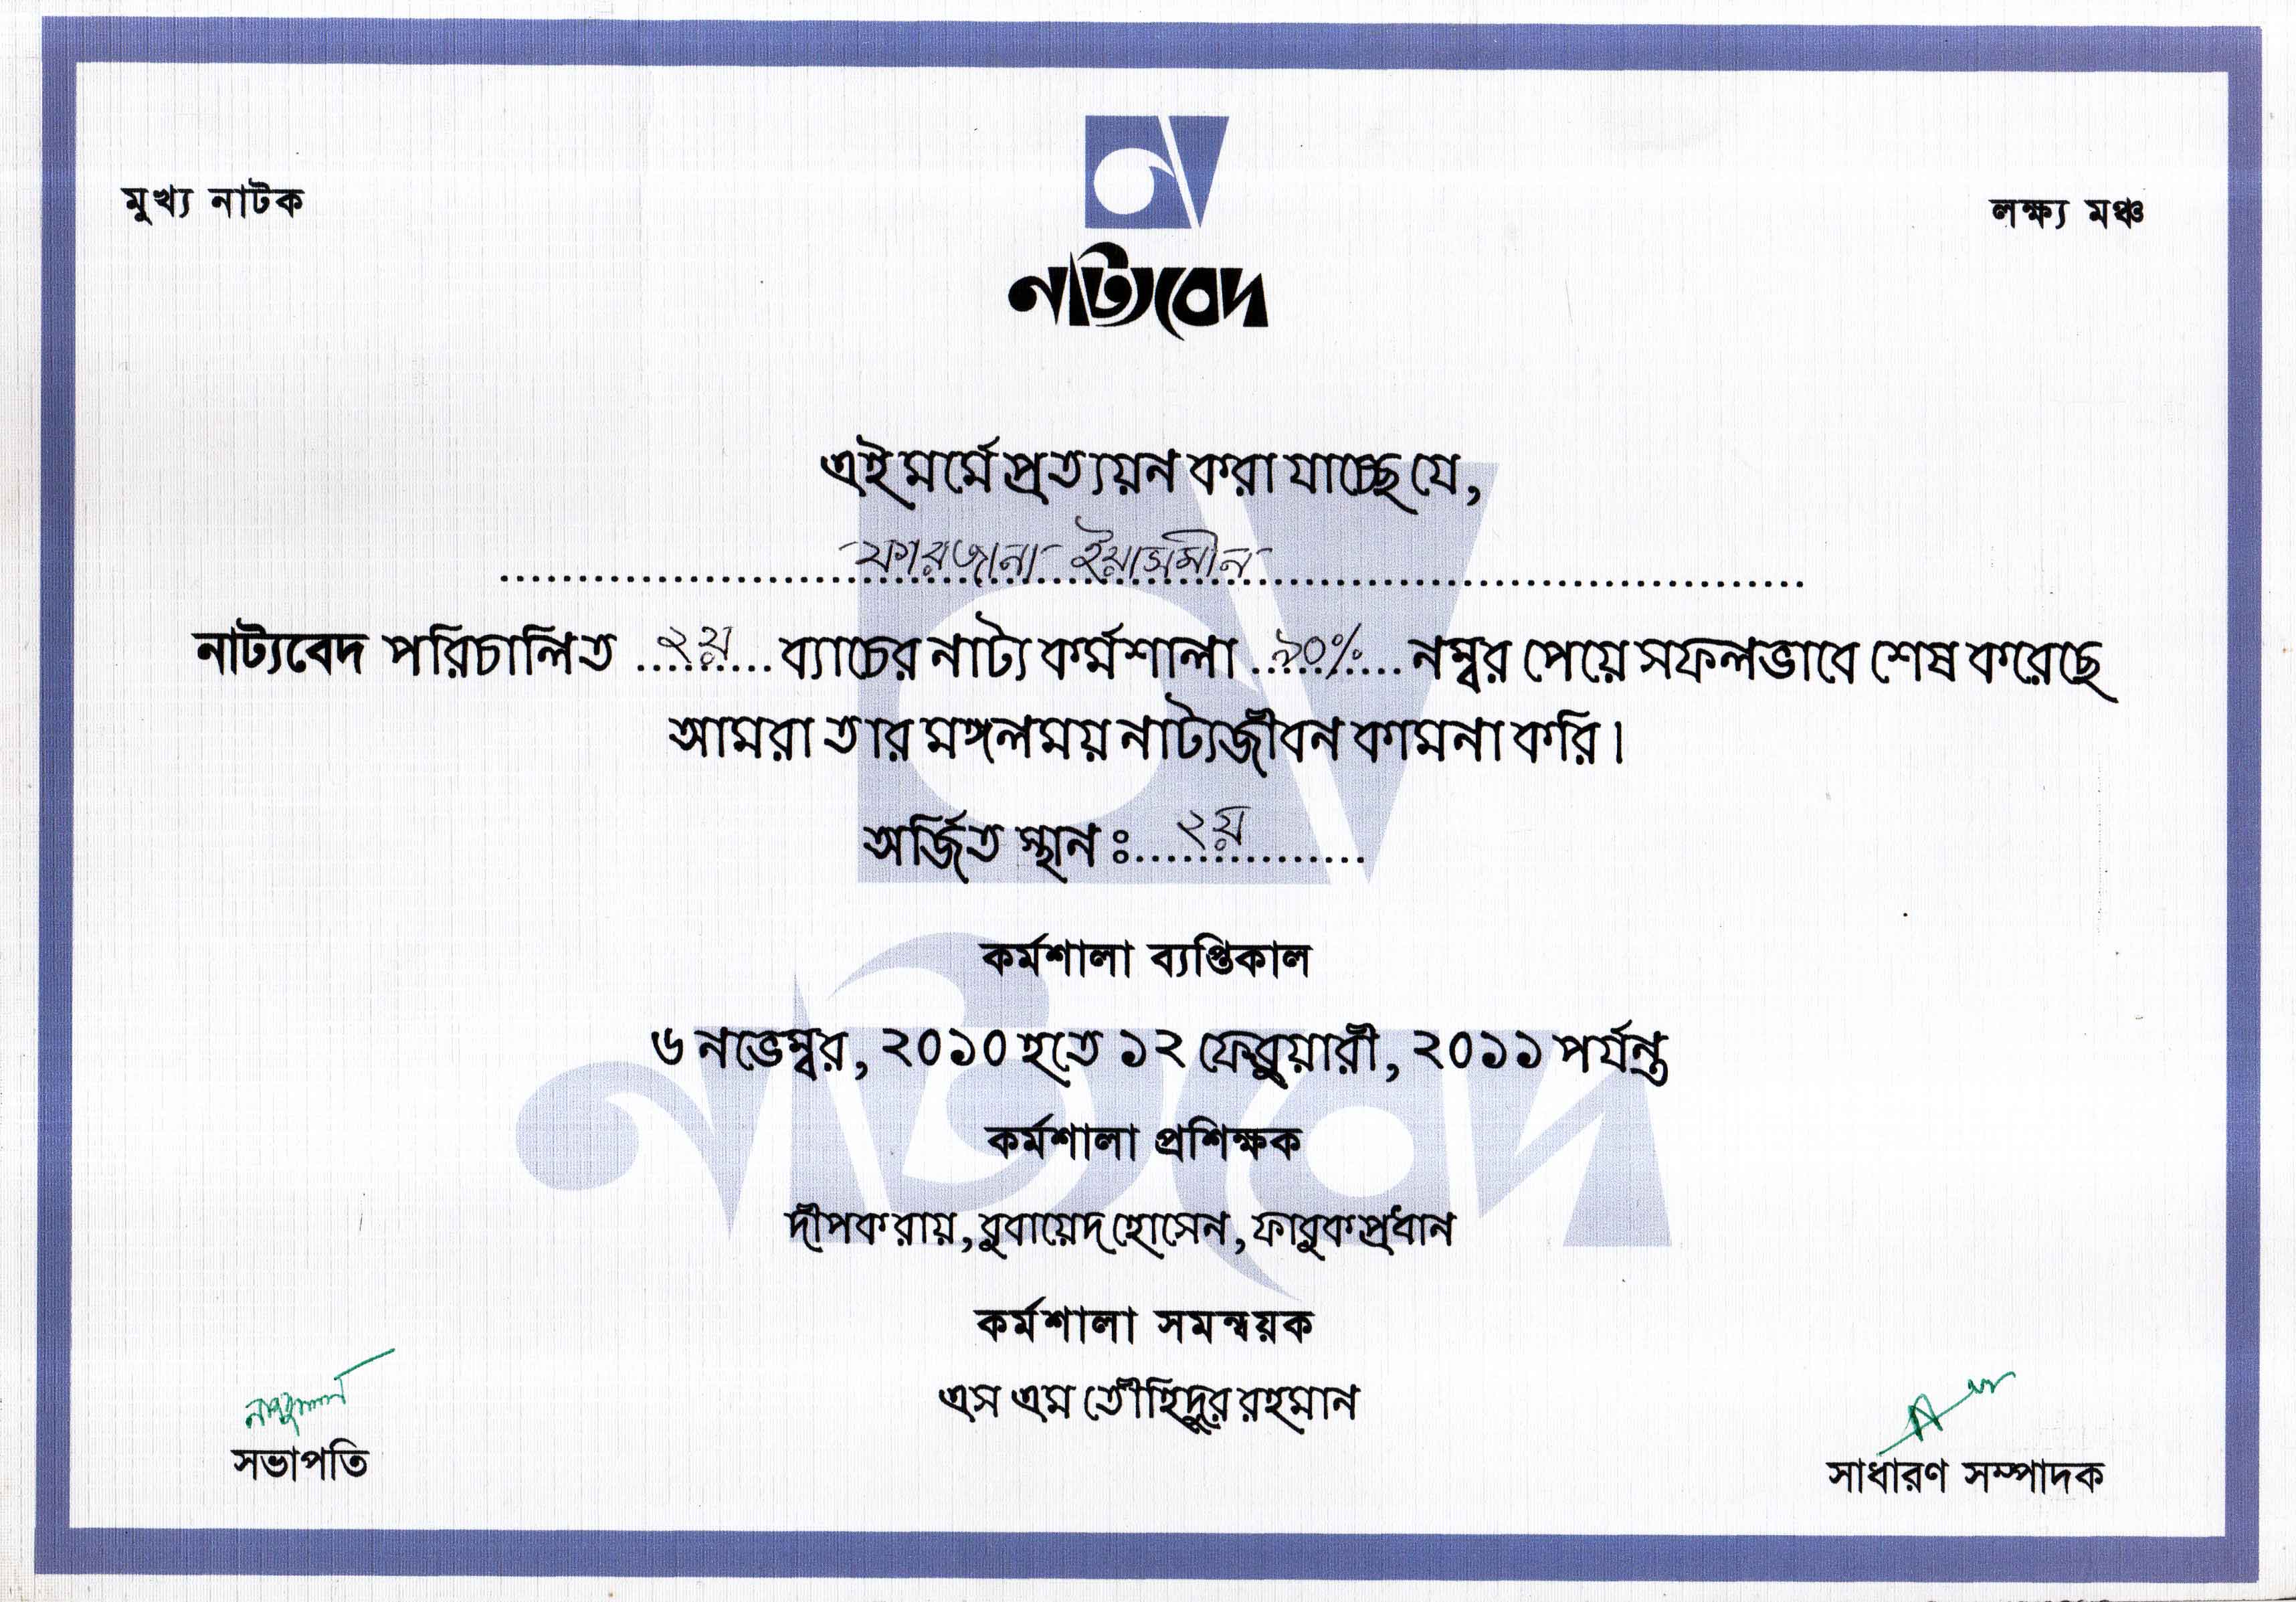 মুখ্য নাটক
লক্ষ্য মঞ্চ
নাট্যবেদ
এই মর্মে প্রত্যয়ন করা যাচ্ছে যে,
ফারজানা ইয়াসমীন
নাট্যবেদ পরিচালিত ২য় ব্যাচের নাট্য কর্মশালা ৯০% নম্বর পেয়ে সফলভাবে শেষ করেছে
আমরা তার মঙ্গলময় নাট্যজীবন কামনা করি।
অর্জিত স্থান ঃ ২য়
কর্মশালা ব্যপ্তিকাল
৬ নভেম্বর, ২০১০ হতে ১২ ফেব্রুয়ারী, ২০১১ পর্যন্ত
কর্মশালা প্রশিক্ষক
দীপক রায়, রুবায়েদ হোসেন, ফারুক প্রধান
কর্মশালা সমন্বয়ক
এস এম তৌহিদুর রহমান
সভাপতি
সাধারণ সম্পাদক